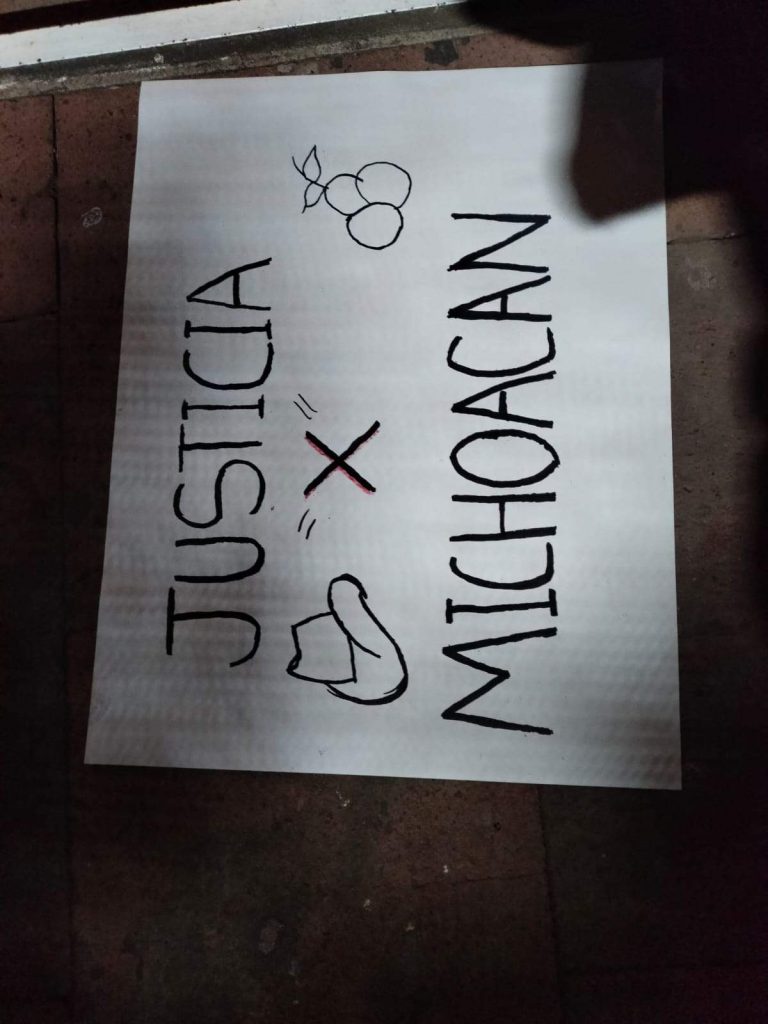 JUSTICIA
X
MICHOACAN